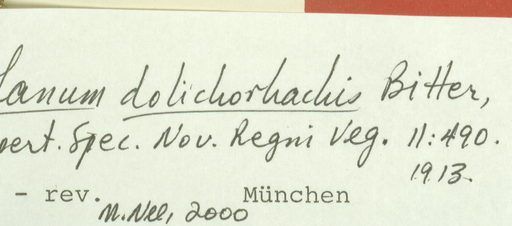 lanum dolichorhachis Bitter,
pert. Spec. Nov. Regni Veg. 11:490.
1913.
- rev. München
M. Nee, 2000